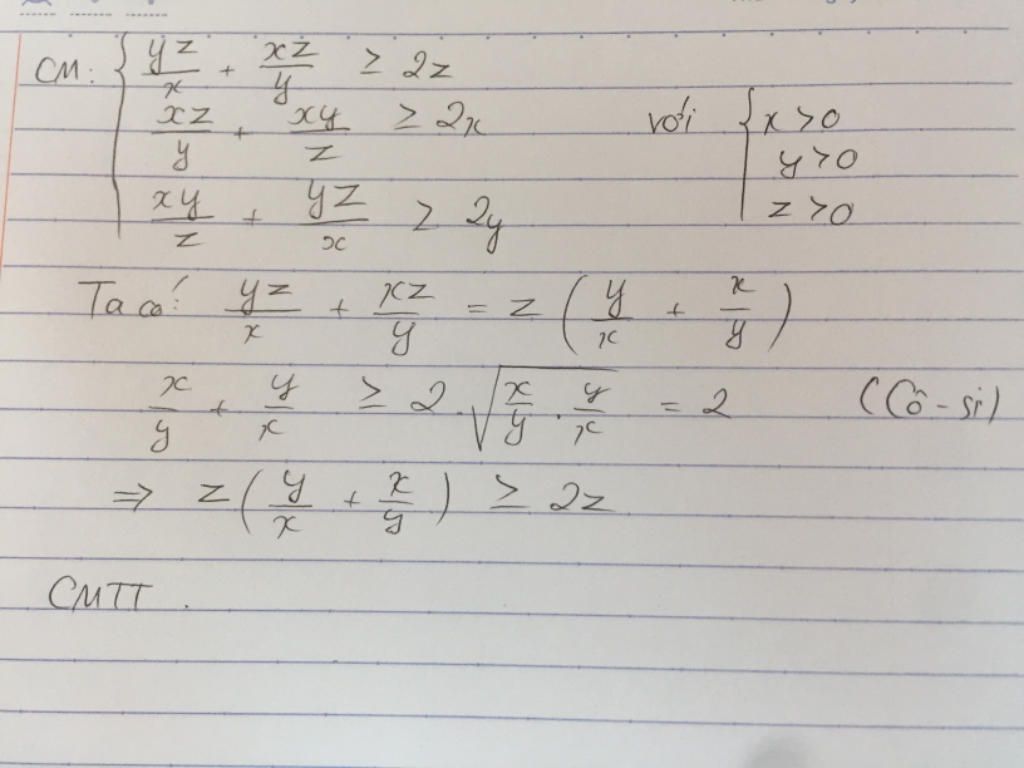 CM: { yz/x + xz/y ≥ 2z
xz/y + xy/z ≥ 2x với { x > 0
y > 0
xy/z + yz/x ≥ 2y z > 0
Ta có: yz/x + xz/y = z (y/x + x/y)
x/y + y/x ≥ 2.√(x/y . y/x) = 2 (Cô-si)
⇒ z (y/x + x/y) ≥ 2z
CMTT.